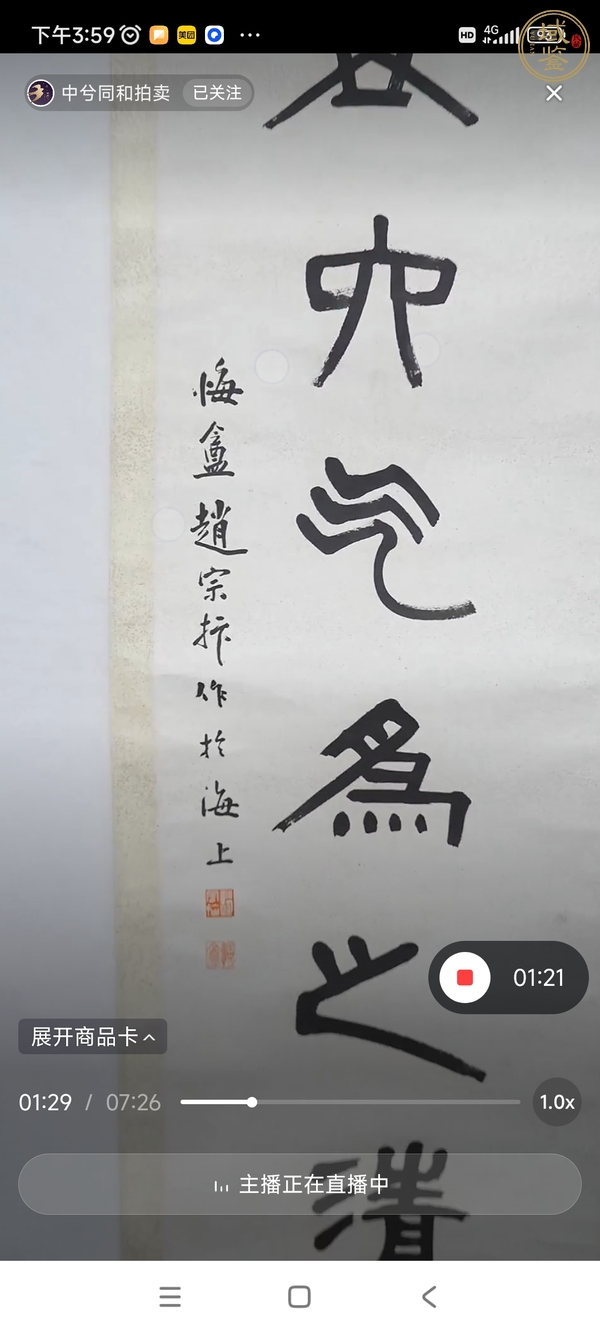 下午3:59
美团
HD 4G 93
中兮同和拍卖 已关注
六气为之清
悔盦趙宗抃作於海上
01:21
展开商品卡
01:29 / 07:26
1.0x
主播正在直播中